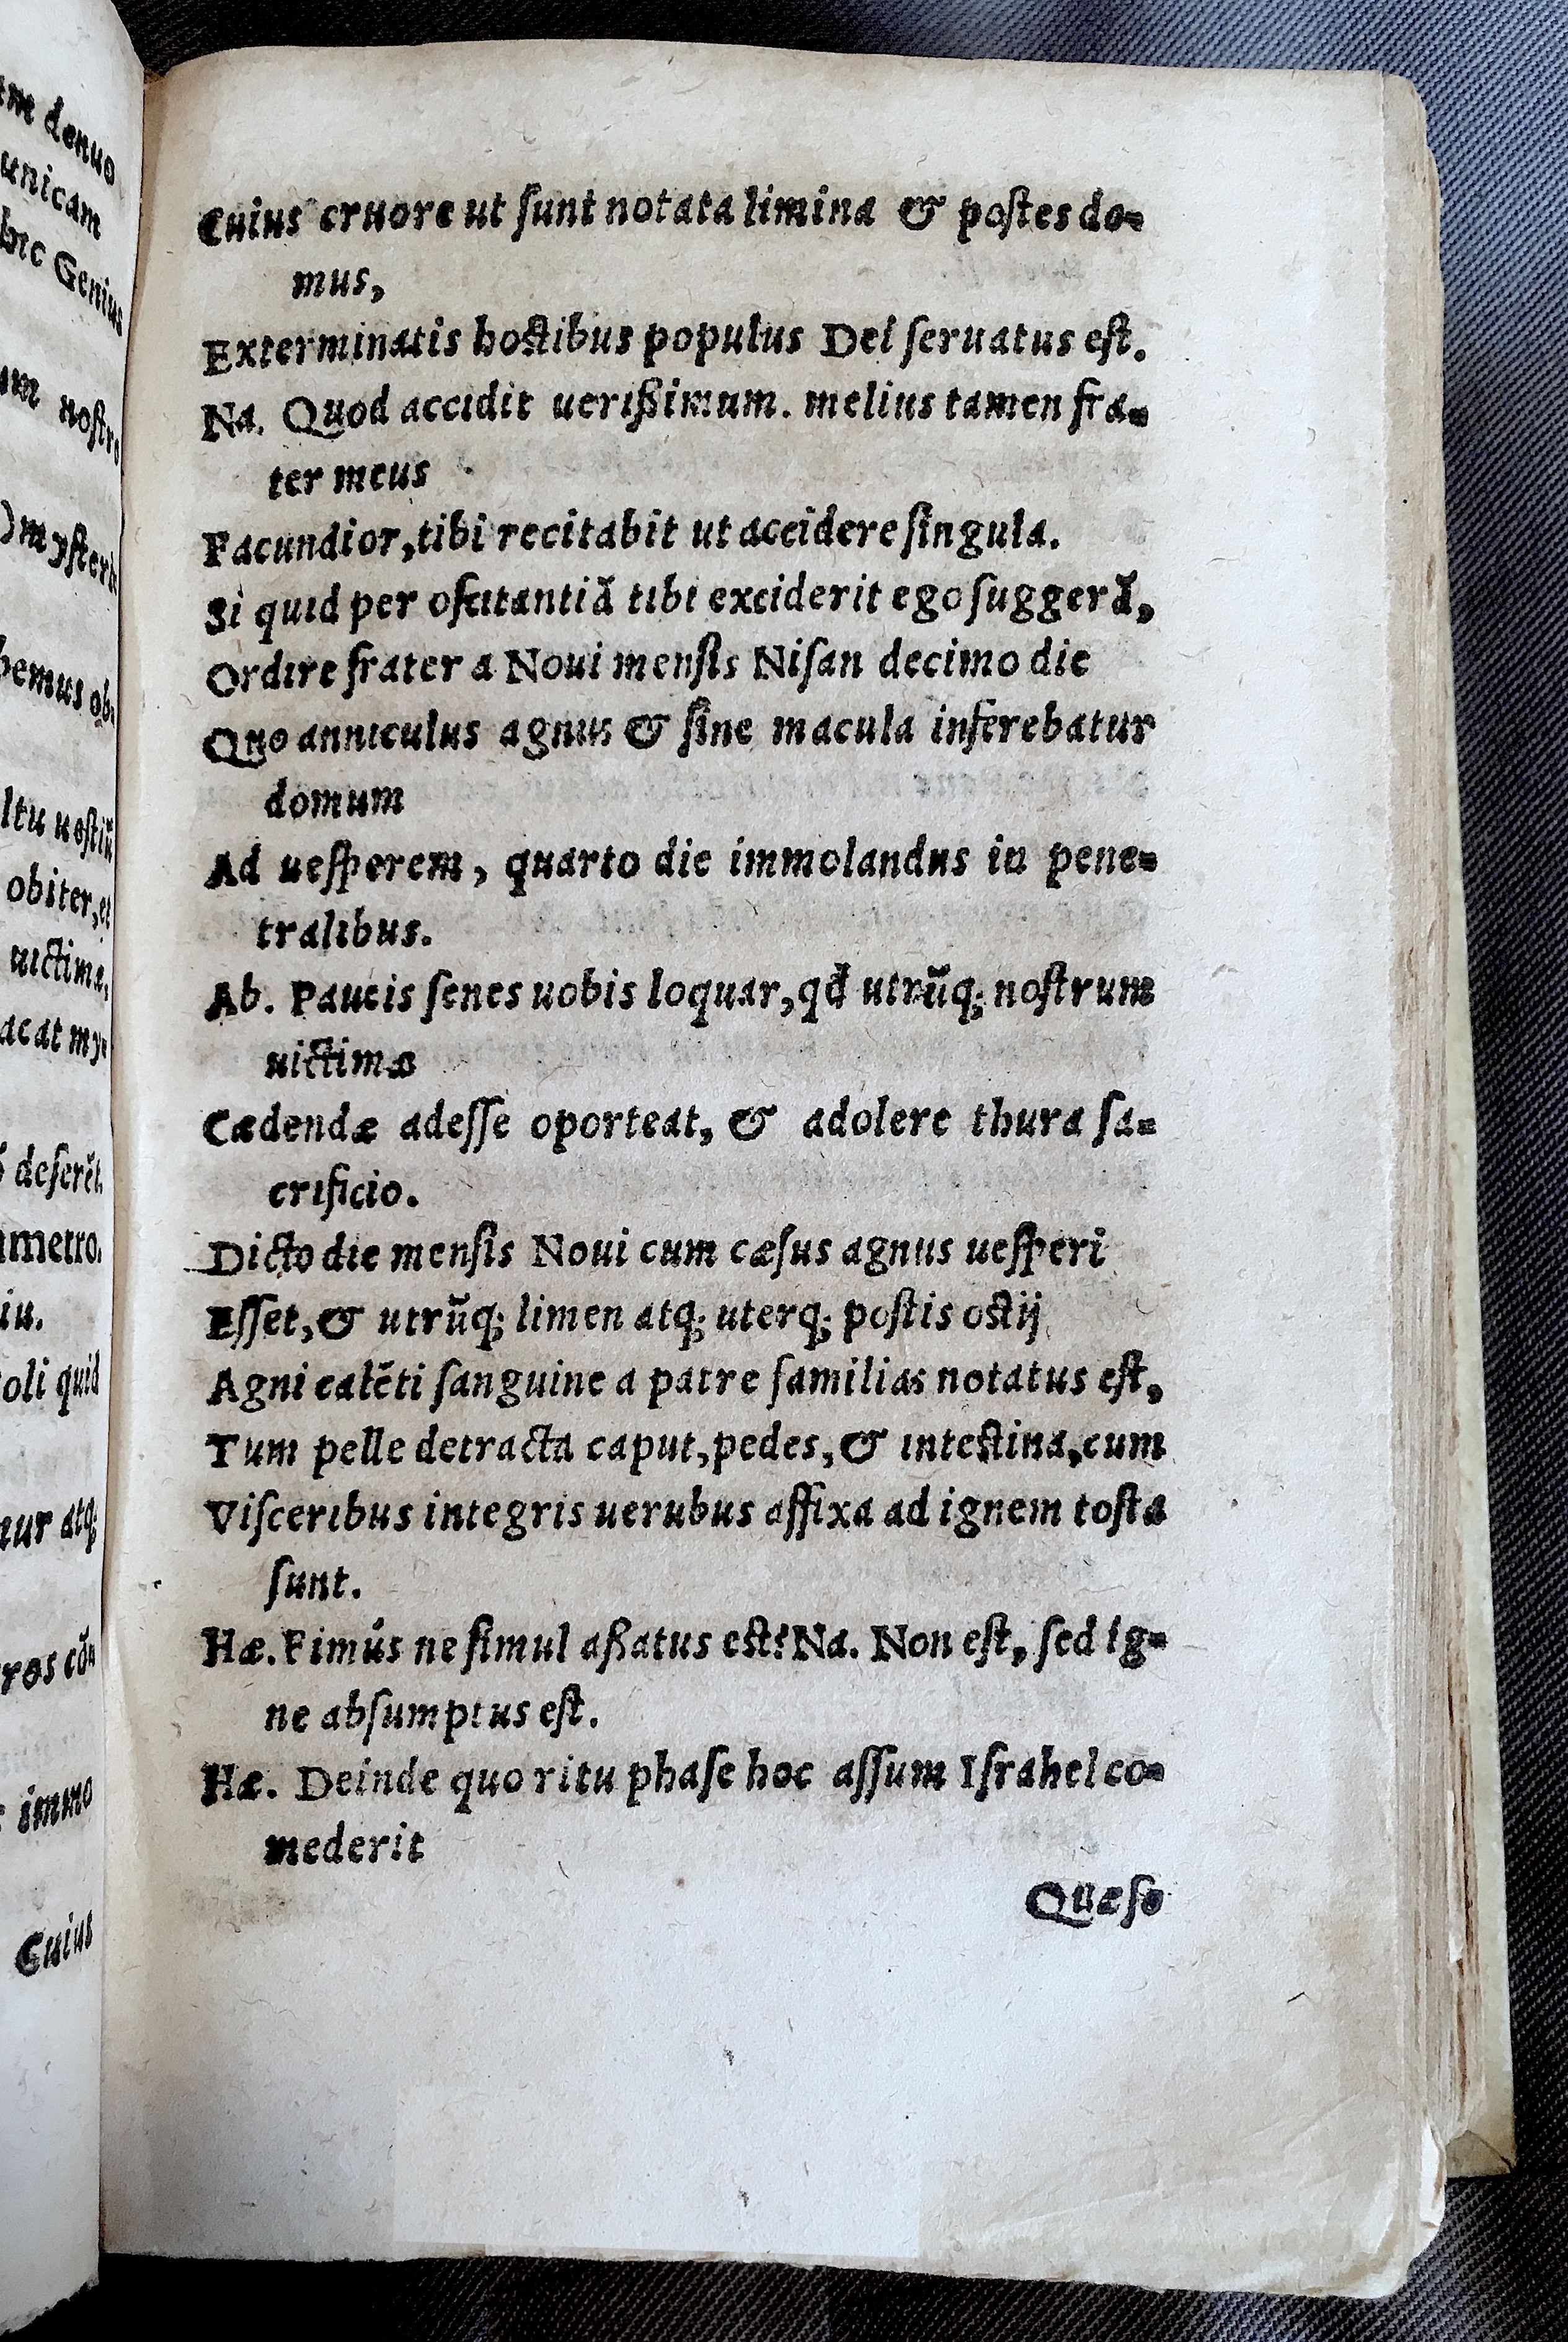 Cuius cruore ut ſunt notata limina & poſtes do-
mus,
Exterminatis hoſtibus populus Dei ſeruatus eſt.
Na. Quod accidit ueriſsimum. melius tamen fra-
ter meus
Facundior, tibi recitabit ut accidere ſingula.
Si quid per oſcitantiā tibi exciderit ego ſuggerā,
Ordire frater a Noui menſis Niſan decimo die
Quo anniculus agnus & ſine macula inferebatur
domum
Ad ueſperem, quarto die immolandus in pene-
tralibus.
Ab. Paucis ſenes uobis loquar, qđ utrūq; noſtrum
uictimæ
Cædendæ adeſſe oporteat, & adolere thura ſa-
crificio.
Dicto die menſis Noui cum cæſus agnus ueſperi
Eſſet, & utrūq; limen atq; uterq; poſtis oſtij
Agni calēti ſanguine a patre familias notatus eſt,
Tum pelle detracta caput, pedes, & inteſtina, cum
Viſceribus integris uerubus affixa ad ignem toſta
ſunt.
Hæ. Fimús ne ſimul aſsatus eſt? Na. Non eſt, ſed ig-
ne abſumptus eſt.
Hæ. Deinde quo ritu phaſe hoc aſſum Iſrahel co-
mederit
Quæſo
denuo
unicam
Genius
noſtro
uictimæ,
obiter, et
quid
atq;
immo
Cuius